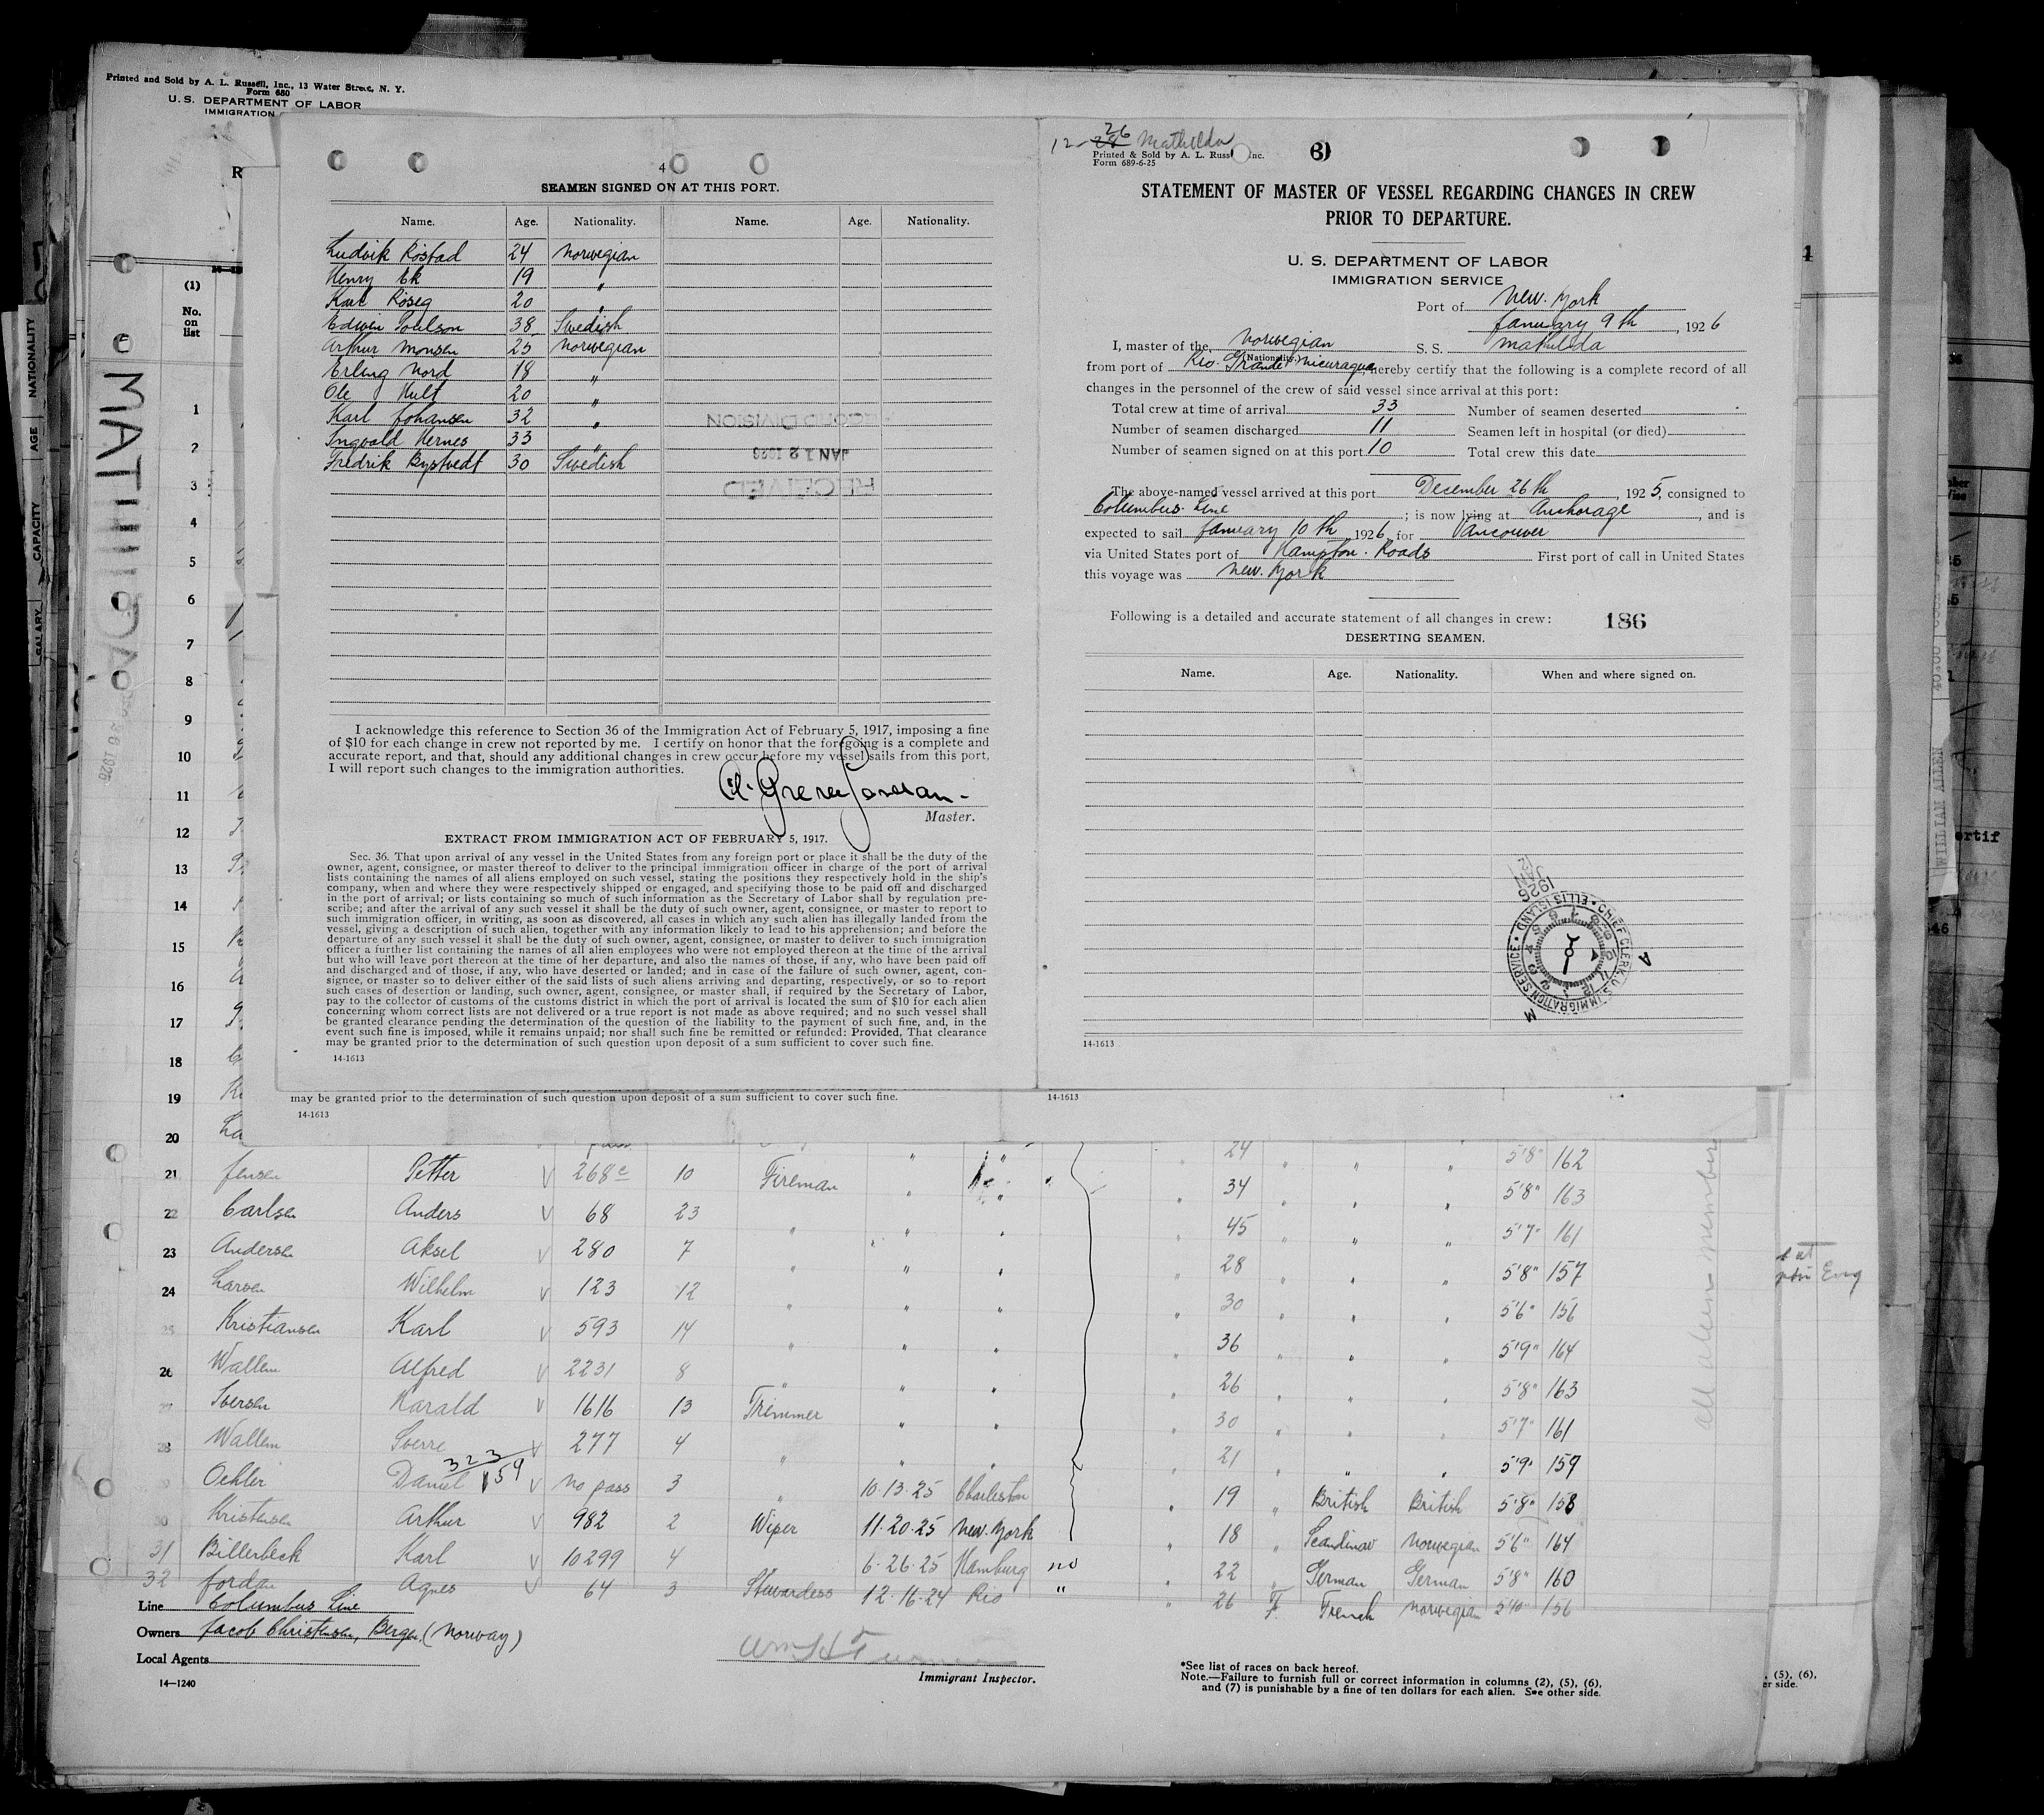 Printed and Sold by A. L. Russell, Inc., 13 Water Street, N. Y.
Form 680
U. S. DEPARTMENT OF LABOR
IMMIGRATION
R
(1)
No.
on
list
1
2
3
4
5
6
7
8
9
10
11
12
13
14
15
16
17
18
19
20
NATIONALITY
AGE
CAPACITY
SALARY
MATHILDA
4
SEAMEN SIGNED ON AT THIS PORT.
Name. Age. Nationality. Name. Age. Nationality.
Ludvik Rostad 24 Norwegian
Henry Ek 19 "
Karl Roseg 20 "
Edwin Poulson 38 Swedish
Arthur Monsen 25 Norwegian
Erling Nord 18 "
Ole Hult 20 "
Karl Johansen 32 "
Ingvald Hernes 33 "
Fredrik Bystvedt 30 Swedish
RECORD DIVISION
JAN 12 1926
RECEIVED
I acknowledge this reference to Section 36 of the Immigration Act of February 5, 1917, imposing a fine
of $10 for each change in crew not reported by me. I certify on honor that the foregoing is a complete and
accurate report, and that, should any additional changes in crew occur before my vessel sails from this port,
I will report such changes to the immigration authorities.
Master.
EXTRACT FROM IMMIGRATION ACT OF FEBRUARY 5, 1917.
Sec. 36. That upon arrival of any vessel in the United States from any foreign port or place it shall be the duty of the
owner, agent, consignee, or master thereof to deliver to the principal immigration officer in charge of the port of arrival
lists containing the names of all aliens employed on such vessel, stating the positions they respectively hold in the ship's
company, when and where they were respectively shipped or engaged, and specifying those to be paid off and discharged
in the port of arrival; or lists containing so much of such information as the Secretary of Labor shall by regulation pre-
scribe; and after the arrival of any such vessel it shall be the duty of such owner, agent, consignee, or master to report to
such immigration officer, in writing, as soon as discovered, all cases in which any such alien has illegally landed from the
vessel, giving a description of such alien, together with any information likely to lead to his apprehension; and before the
departure of any such vessel it shall be the duty of such owner, agent, consignee, or master to deliver to such immigration
officer a further list containing the names of all alien employees who were not employed thereon at the time of the arrival
but who will leave port thereon at the time of her departure, and also the names of those, if any, who have been paid off
and discharged and of those, if any, who have deserted or landed; and in case of the failure of such owner, agent, con-
signee, or master so to deliver either of the said lists of such aliens arriving and departing, respectively, or so to report
such cases of desertion or landing, such owner, agent, consignee, or master shall, if required by the Secretary of Labor,
pay to the collector of customs of the customs district in which the port of arrival is located the sum of $10 for each alien
concerning whom correct lists are not delivered or a true report is not made as above required; and no such vessel shall
be granted clearance pending the determination of the question of the liability to the payment of such fine, and, in the
event such fine is imposed, while it remains unpaid; nor shall such fine be remitted or refunded: Provided, That clearance
may be granted prior to the determination of such question upon deposit of a sum sufficient to cover such fine.
14-1613
12-26 Mathilda
Printed & Sold by A. L. Russ Inc.
Form 689-6-25
3
STATEMENT OF MASTER OF VESSEL REGARDING CHANGES IN CREW
PRIOR TO DEPARTURE.
U. S. DEPARTMENT OF LABOR
IMMIGRATION SERVICE
Port of New York
January 9th, 1926
I, master of the Norwegian S. S. Mathilda
(Nationality.)
from port of Rio Grande Nicuragua, hereby certify that the following is a complete record of all
changes in the personnel of the crew of said vessel since arrival at this port:
Total crew at time of arrival 33 Number of seamen deserted
Number of seamen discharged 11 Seamen left in hospital (or died)
Number of seamen signed on at this port 10 Total crew this date
The above-named vessel arrived at this port December 26th, 1925, consigned to
Columbus Line; is now lying at Anchorage, and is
expected to sail January 10th, 1926, for Vancouver
via United States port of Hampton Roads First port of call in United States
this voyage was New York
Following is a detailed and accurate statement of all changes in crew: 186
DESERTING SEAMEN.
Name. Age. Nationality. When and where signed on.
1926 JAN 12
CHIEF CLERK U.S. IMMIGRATION SERVICE • ELLIS ISLAND
A M
14-1613
may be granted prior to the determination of such question upon deposit of a sum sufficient to cover such fine.
14-1613 14-1613
24 " " " 5'8" 162
21 Jensen Petter 268 10 Fireman " " 34 " " " 5'8" 163
22 Carlsen Anders 68 23 " " " 45 " " " 5'7" 161
23 Andersen Aksel 280 7 " " " 28 " " " 5'8" 157
24 Larsen Wilhelm 123 12 " " " 30 " " " 5'6" 156
25 Kristiansen Karl 593 14 " " " 36 " " " 5'9" 164
26 Wallem Alfred 2231 8 " " " 26 " " " 5'8" 163
27 Iversen Harald 1616 13 Trimmer " " 30 " " " 5'7" 161
28 Wallem Sverre 277 4 " " " 21 " " " 5'9" 159
323
159
Oehler Daniel no pass 3 " 10.13.25 Charleston " 19 " British British 5'8" 158
30 Kristensen Arthur 982 2 Wiper 11.20.25 New York " 18 " Scandinav Norwegian 5'6" 164
31 Billerbeck Karl 10299 4 6.26.25 Hamburg no " 22 " German German 5'8" 160
32 Jordan Agnes 64 3 Stewardess 12.16.24 Rio " " 26 F. French Norwegian 5'10" 156
all alien members
Line Columbus Line
Owners Jacob Christensen, Bergen (Norway)
Local Agents
14—1240
Immigrant Inspector.
*See list of races on back hereof.
Note.—Failure to furnish full or correct information in columns (2), (5), (6),
and (7) is punishable by a fine of ten dollars for each alien. See other side.
, (5), (6),
er side.
WILLIAN ALLEN
ertif
Eng